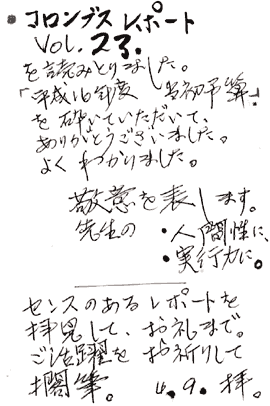 コロンブス レポート
Vol. 23.
を読みとりました。
「平成16年度 当初予算」
を砕いていただいて、
ありがとうございました。
よくわかりました。
敬意を表します。
先生の ・人間性に、
・実行力に。
センスのあるレポートを
拝見して、お礼まで。
ご活躍をお祈りして
擱筆。 4.9. 拝。